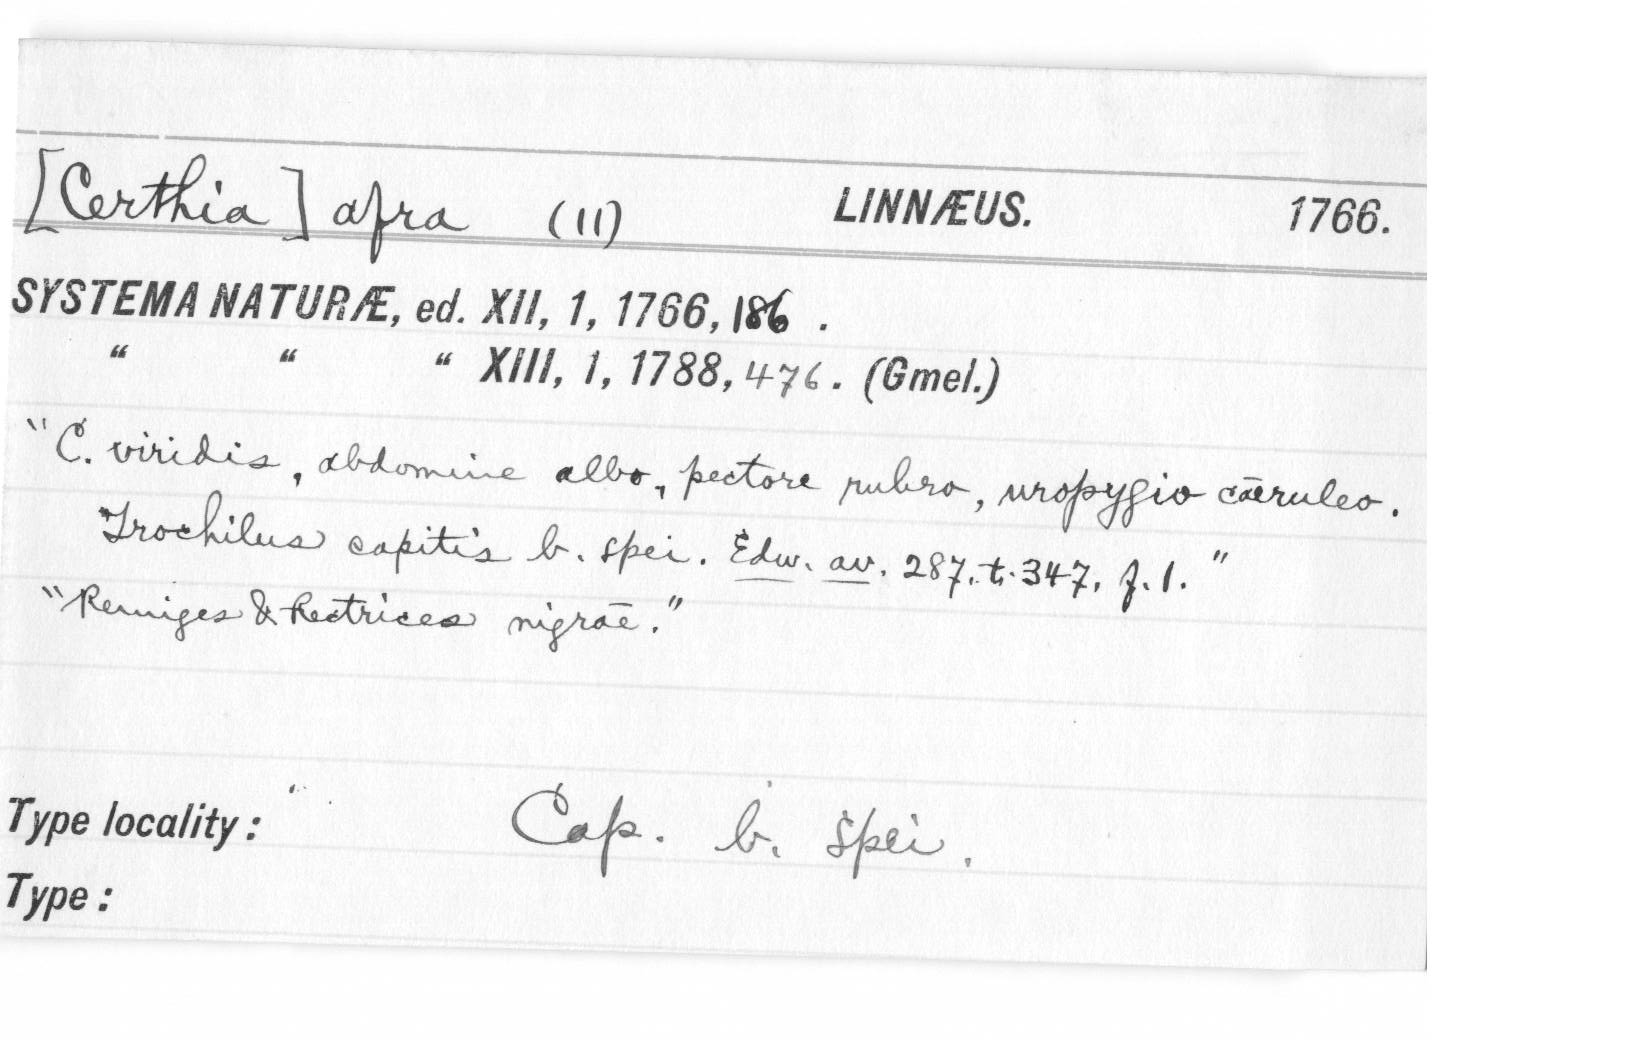 [Certhia] afra (11) LINNÆUS. 1766.
SYSTEMA NATURÆ, ed. XII, 1, 1766, 186 .
“ “ “ XIII, 1, 1788, 476. (Gmel.)
"C. viridis, abdomine albo, pectore rubro, uropygio cæruleo.
Trochilus capitis b. spei. Edw. av. 287. t. 347. f. 1."
"Remiges & Rectrices nigræ."
Type locality: Cap. b. Spei.
Type: